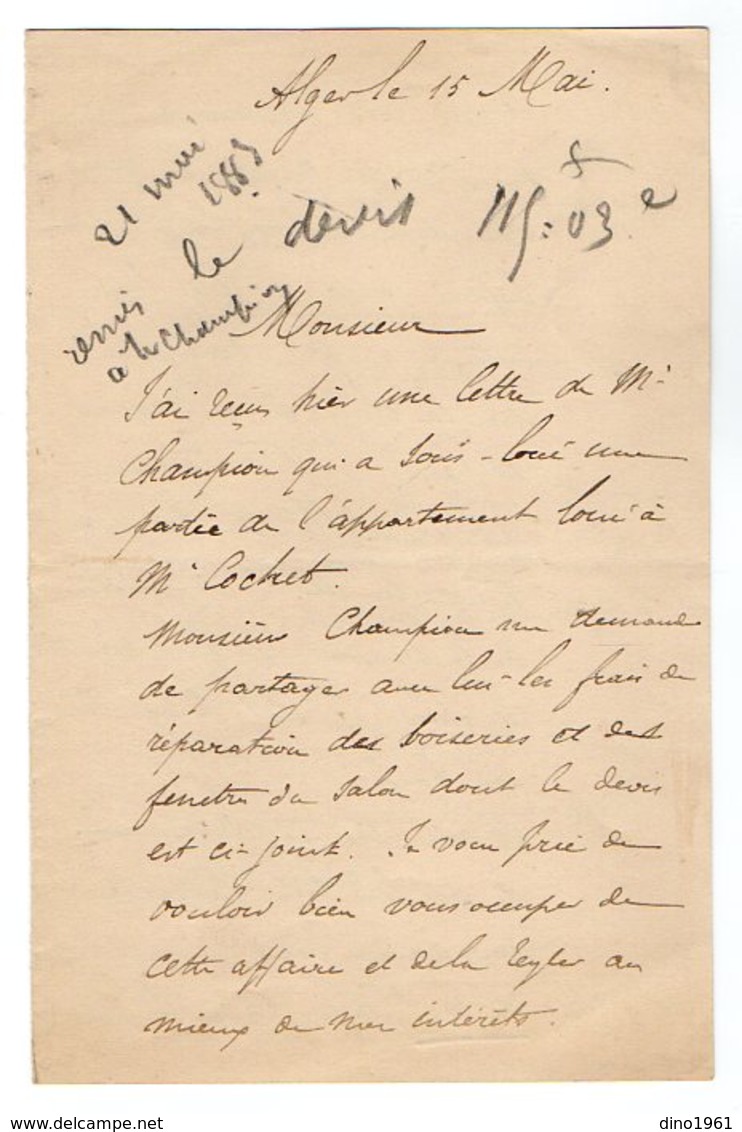 Alger le 15 Mai.
21 mai
1883
remis le devis 115f:03.e
à Mr Champion
Monsieur
J'ai reçus hier une lettre de Mr
Champion qui a sous-loué une
partie de l'appartement loué à
Mr Cochet.
Monsieur Champion me demande
de partager avec lui les frais de
réparation des boiseries et des
fenetres du salon dont le devis
est ci-joint. Je vous prie de
vouloir bien vous occuper de
cette affaire et de la regler au
mieux de mes intérêts.
delcampe.net
dino1961